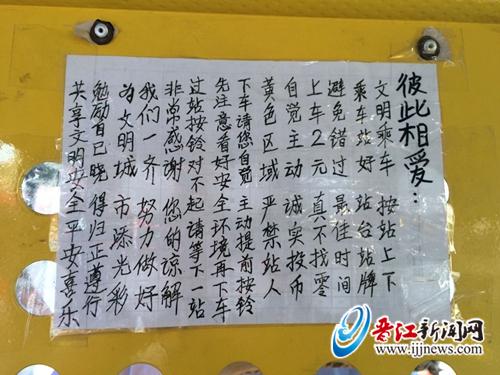 彼此相爱：
文明乘车 按站上下
乘车站好 站台站牌
避免错过 最佳时间
上车2元 直不找零
自觉主动 诚实投币
黄色区域 严禁站人
下车请您自觉主动提前按铃
先注意看好安全环境再下车
过站按铃对不起请等下一站
非常感谢 您的谅解
我们一齐 努力做好
为文明城 市添光彩
勉励自己晓得归正遵行
共享文明安全平安喜乐
晋江新闻网
www.ijjnews.com